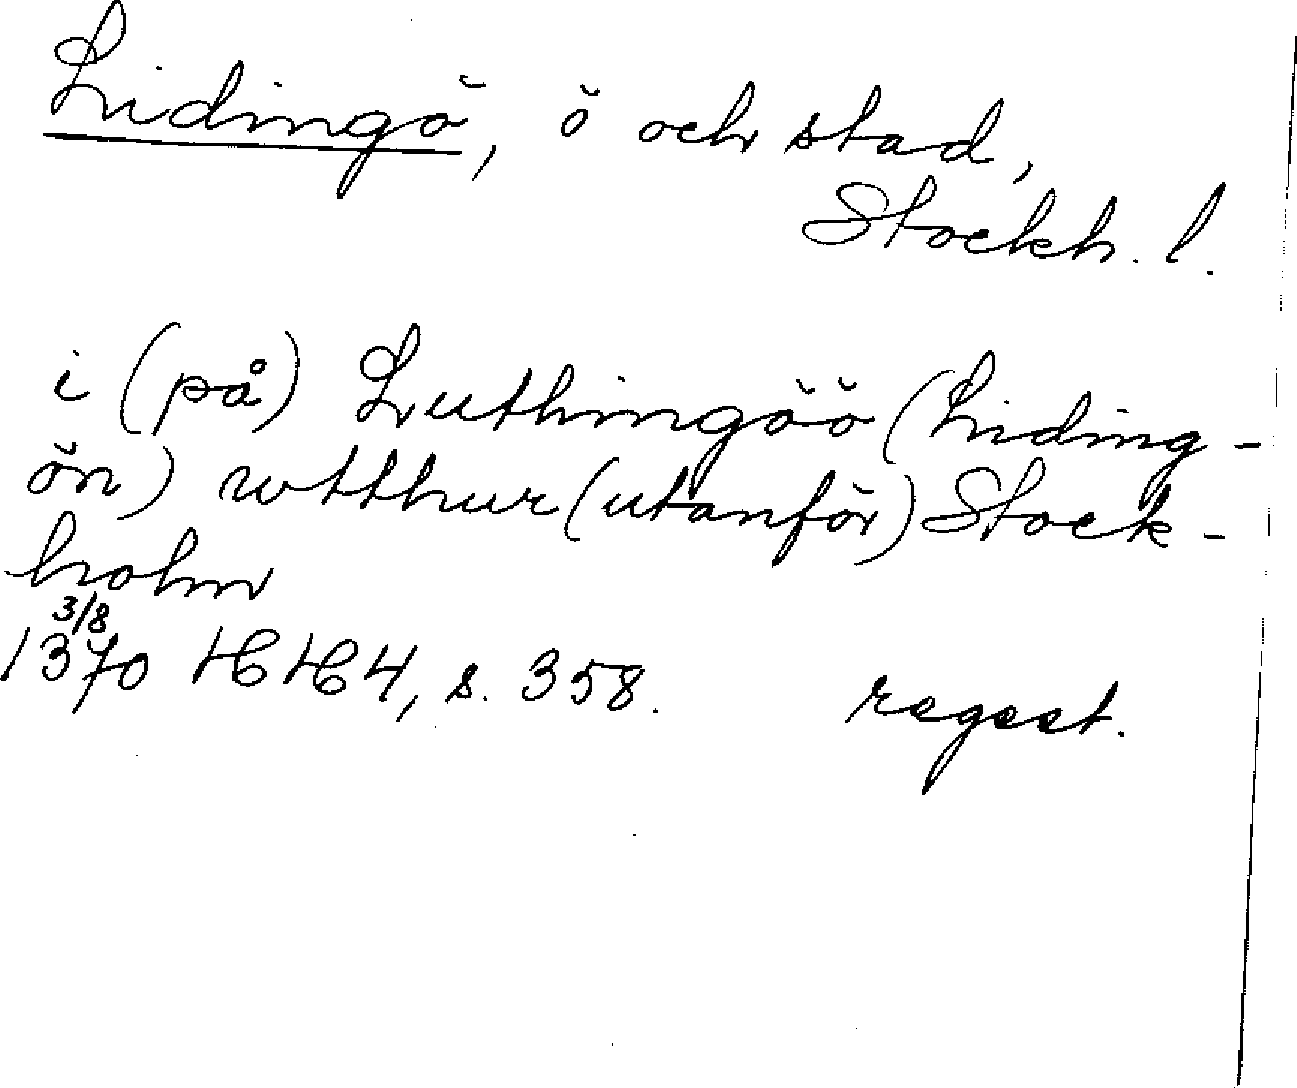 Lidingö, ö och stad,
Stockh. l.
i (på) Luthingöö (Liding-
ön) wtthur (utanför) Stock-
holm
3/8
1370 HH 4, s. 358. regest.